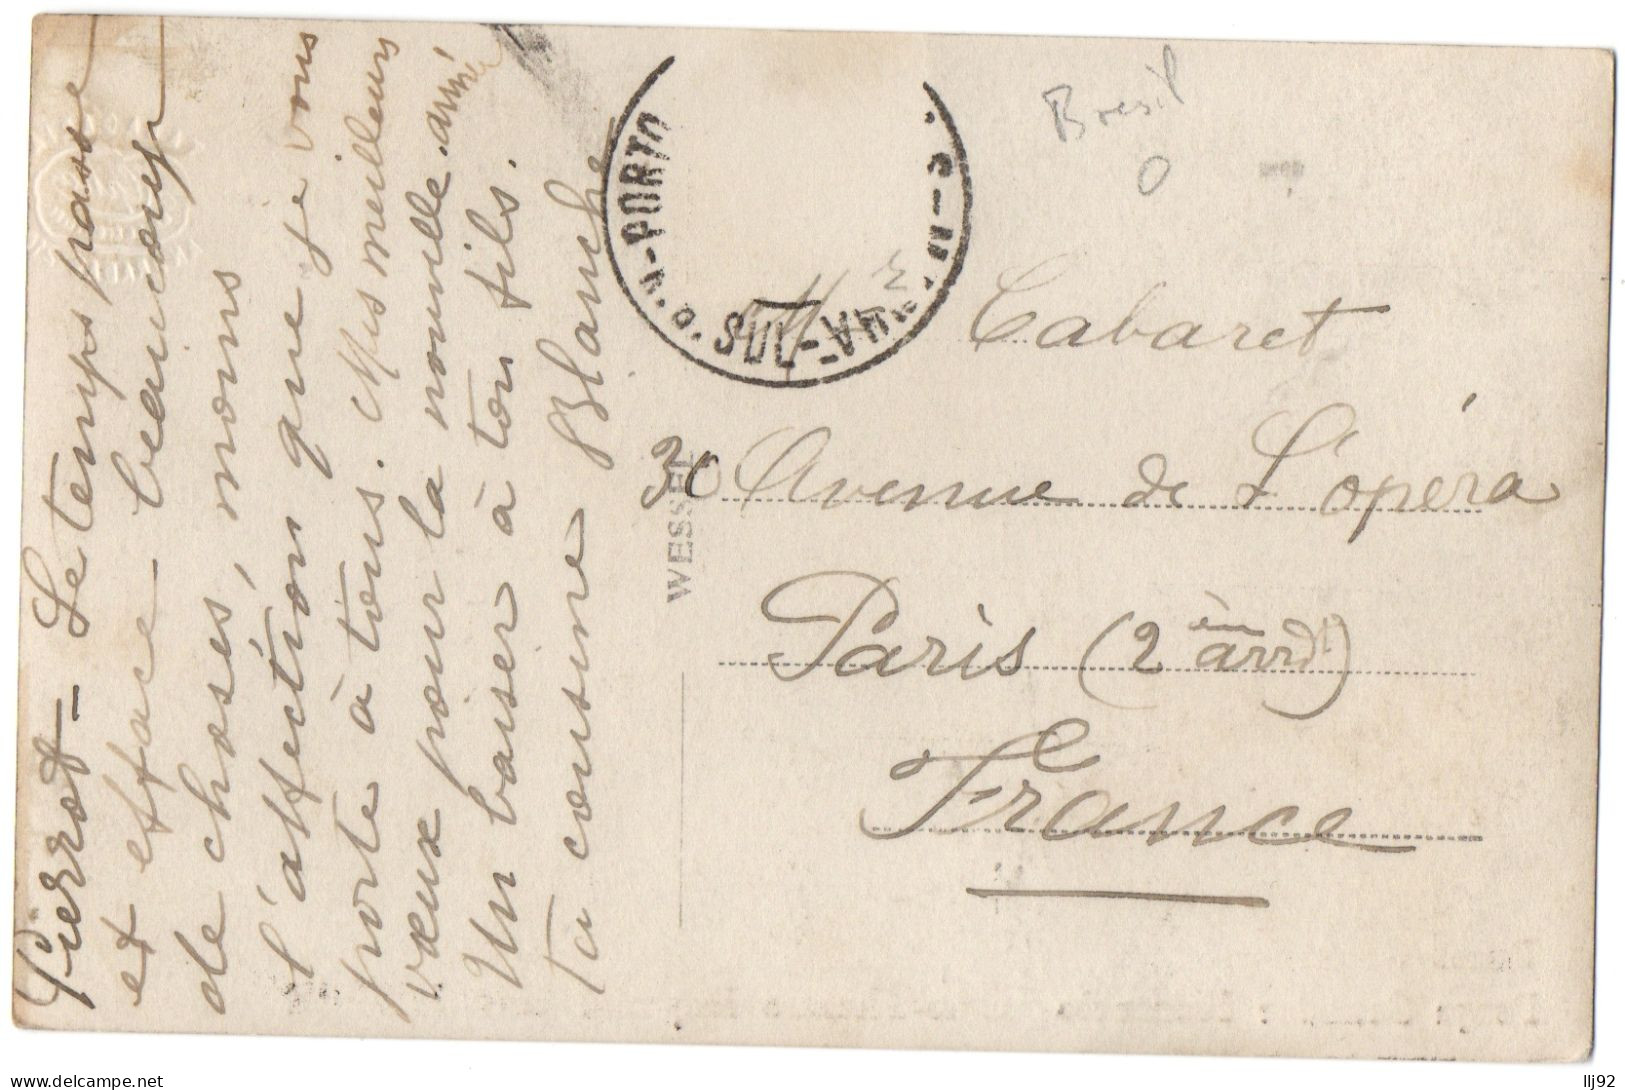 Pierrot – Le temps passe
et efface beaucoup
de choses, moins
l'affection que je vous
porte à tous. Mes meilleurs
vœux pour la nouvelle année
Un baiser à ton fils.
Ta cousine Blanche
PORTO
SUL
Bresil
0
WESSEL
Cabaret
30 Avenue de L'opéra
Paris (2 èm arrdt)
France
llj92